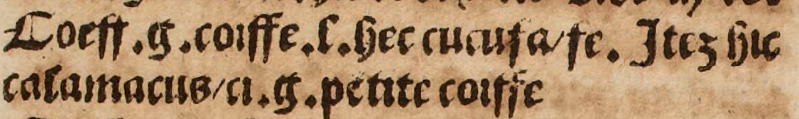 Coeff .g. coiffe. l. hec cucufa/fe. Itēz hic
calamacus/ci .g. petite coiffe